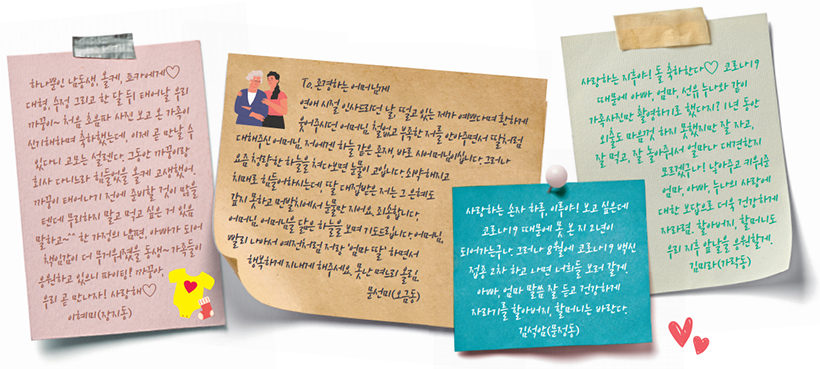 하나뿐인 남동생, 올케, 조카에게♡
대형, 수정 그리고 한 달 뒤 태어날 우리
까꿍이~ 처음 초음파 사진 보고 온 가족이
신기해하며 축하했는데, 이제 곧 만날 수
있다니 고모는 설렌다. 그동안 까꿍이랑
회사 다니느라 힘들었을 올케 고생했어.
까꿍이 태어나기 전에 준비할 것이 많을
텐데 무리하지 말고 먹고 싶은 거 있음
말하고~^^ 한 가정의 남편, 아빠가 되어
책임감이 더 무거워졌을 동생~ 가족들이
응원하고 있으니 파이팅! 까꿍아,
우리 곧 만나자! 사랑해♡
이혜미(장지동)
To. 존경하는 어머님께
연애 시절 인사드리던 날, 떨고 있는 제가 예쁘다며 환하게
웃어주시던 어머님. 철없고 부족한 저를 안아주면서 딸처럼
대해주신 어머님. 저에게 하늘 같은 존재, 바로 시어머님이십니다. 그러나
요즘 청량한 하늘을 쳐다보면 눈물이 고입니다. 소박해지고
치매로 힘들어하시는데, 딸 대접받은 저는 그 은혜도
갚지 못하고 먼발치에서 눈물만 지어요. 죄송합니다.
어머님. 어머님을 닮은 하늘을 보며 기도드립니다. 어머님,
빨리 나아서 예전처럼 저랑 '엄마 딸' 하면서
행복하게 지내게 해주세요. 못난 며느리 올림.
문선미(오금동)
사랑하는 손자 하루, 이루야! 보고 싶은데
코로나19 때문에 못 본 지 2년이
되어가는구나. 그러나 8월에 코로나19 백신
접종 2차 하고 나면 너희들 보러 갈게.
아빠, 엄마 말씀 잘 듣고 건강하게
자라기를 할아버지, 할머니는 바란다.
김석암(문정동)
사랑하는 지후야! 돌 축하한다♡ 코로나19
때문에 아빠, 엄마, 선유 누나와 같이
가족사진만 촬영하기로 했다지? 1년 동안
외출도 마음껏 하지 못했지만 잘 자고,
잘 먹고, 잘 놀아줘서 얼마나 대견한지
모르겠구나! 낳아주고 키워준
엄마, 아빠, 누나의 사랑에
대한 보답으로 더욱 건강하게
자라렴. 할아버지, 할머니도
우리 지후 앞날을 응원할게.
김미라(가락동)